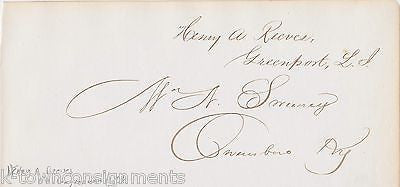 Henry A Reeves,
Greenport, L. I.
Wm N. Sweeney
Owensboro Ky
Henry A. Reeves
k-townconsignments